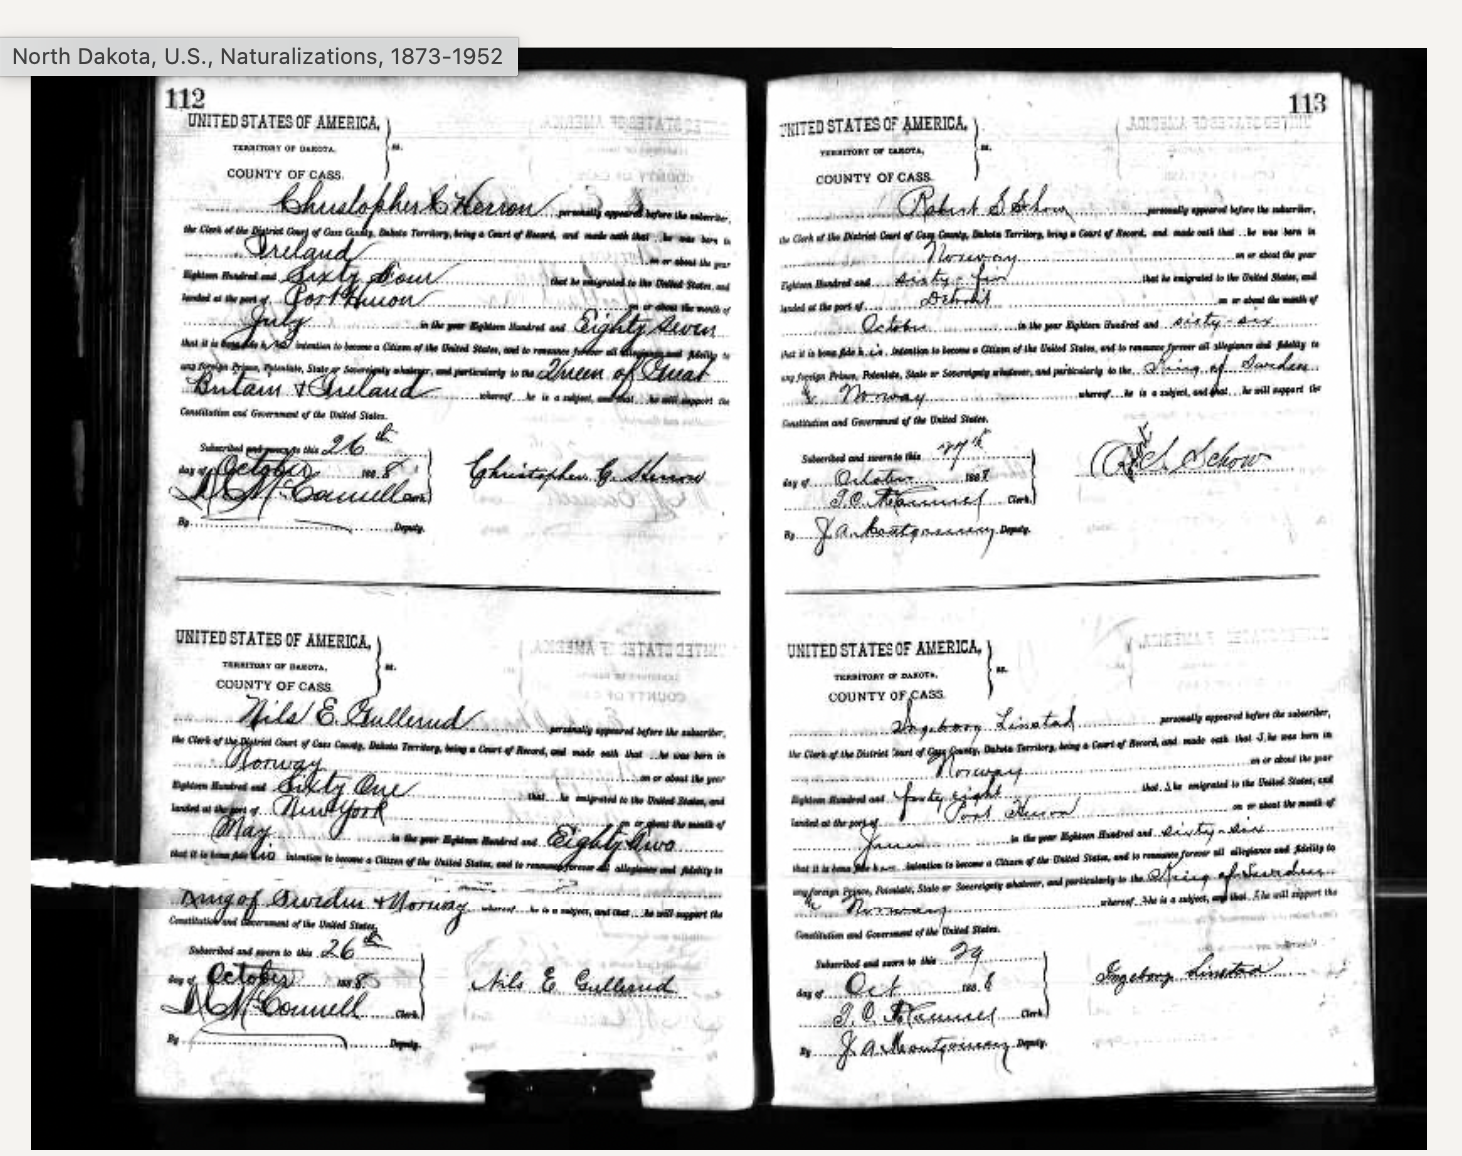 North Dakota, U.S., Naturalizations, 1873-1952
112
UNITED STATES OF AMERICA,
TERRITORY OF DAKOTA,
ss.
COUNTY OF CASS.
Christopher C Herron personally appeared before the subscriber,
the Clerk of the District Court of Cass County, Dakota Territory, being a Court of Record, and made oath that he was born in
Ireland on or about the year
Eighteen Hundred and Sixty Four that he emigrated to the United States, and
landed at the port of Port Huron on or about the month of
July in the year Eighteen Hundred and Eighty Seven
that it is bona fide his intention to become a Citizen of the United States, and to renounce forever all allegiance and fidelity to
any foreign Prince, Potentate, State or Sovereignty whatever, and particularly to the Queen of Great
Britain & Ireland whereof he is a subject, and that he will support the
Constitution and Government of the United States.
Subscribed and sworn to this 26th
day of October 1888
McConnell Clerk
Christopher C. Herron
By Deputy.
UNITED STATES OF AMERICA,
TERRITORY OF DAKOTA,
ss.
COUNTY OF CASS.
Nils E. Gullerud personally appeared before the subscriber,
the Clerk of the District Court of Cass County, Dakota Territory, being a Court of Record, and made oath that he was born in
Norway on or about the year
Eighteen Hundred and Sixty One that he emigrated to the United States, and
landed at the port of New York on or about the month of
May in the year Eighteen Hundred and Eighty Two
that it is bona fide his intention to become a Citizen of the United States, and to renounce forever all allegiance and fidelity to
King of Sweden & Norway whereof he is a subject, and that he will support the
Constitution and Government of the United States.
Subscribed and sworn to this 26th
day of October 1888
McConnell Clerk
Nils E Gullerud
By Deputy.
113
UNITED STATES OF AMERICA,
TERRITORY OF DAKOTA,
ss.
COUNTY OF CASS.
Robert S Schow personally appeared before the subscriber,
the Clerk of the District Court of Cass County, Dakota Territory, being a Court of Record, and made oath that he was born in
Norway on or about the year
Eighteen Hundred and sixty-five that he emigrated to the United States, and
landed at the port of Detroit on or about the month of
October in the year Eighteen Hundred and sixty-six
that it is bona fide his intention to become a Citizen of the United States, and to renounce forever all allegiance and fidelity to
any foreign Prince, Potentate, State or Sovereignty whatever, and particularly to the King of Sweden
& Norway whereof he is a subject, and that he will support the
Constitution and Government of the United States.
Subscribed and sworn to this 27th
day of October 1888
McConnell Clerk.
R S Schow
By J. A. Montgomery Deputy.
UNITED STATES OF AMERICA,
TERRITORY OF DAKOTA,
ss.
COUNTY OF CASS.
Ingeborg Linstad personally appeared before the subscriber,
the Clerk of the District Court of Cass County, Dakota Territory, being a Court of Record, and made oath that She was born in
Norway on or about the year
Eighteen Hundred and forty eight that She emigrated to the United States, and
landed at the port of Port Huron on or about the month of
June in the year Eighteen Hundred and sixty-six
that it is bona fide her intention to become a Citizen of the United States, and to renounce forever all allegiance and fidelity to
any foreign Prince, Potentate, State or Sovereignty whatever, and particularly to the King of Sweden
& Norway whereof She is a subject, and that She will support the
Constitution and Government of the United States.
Subscribed and sworn to this 29
day of Oct 1888
McConnell Clerk
Ingeborg Linstad
By J. A. Montgomery Deputy.